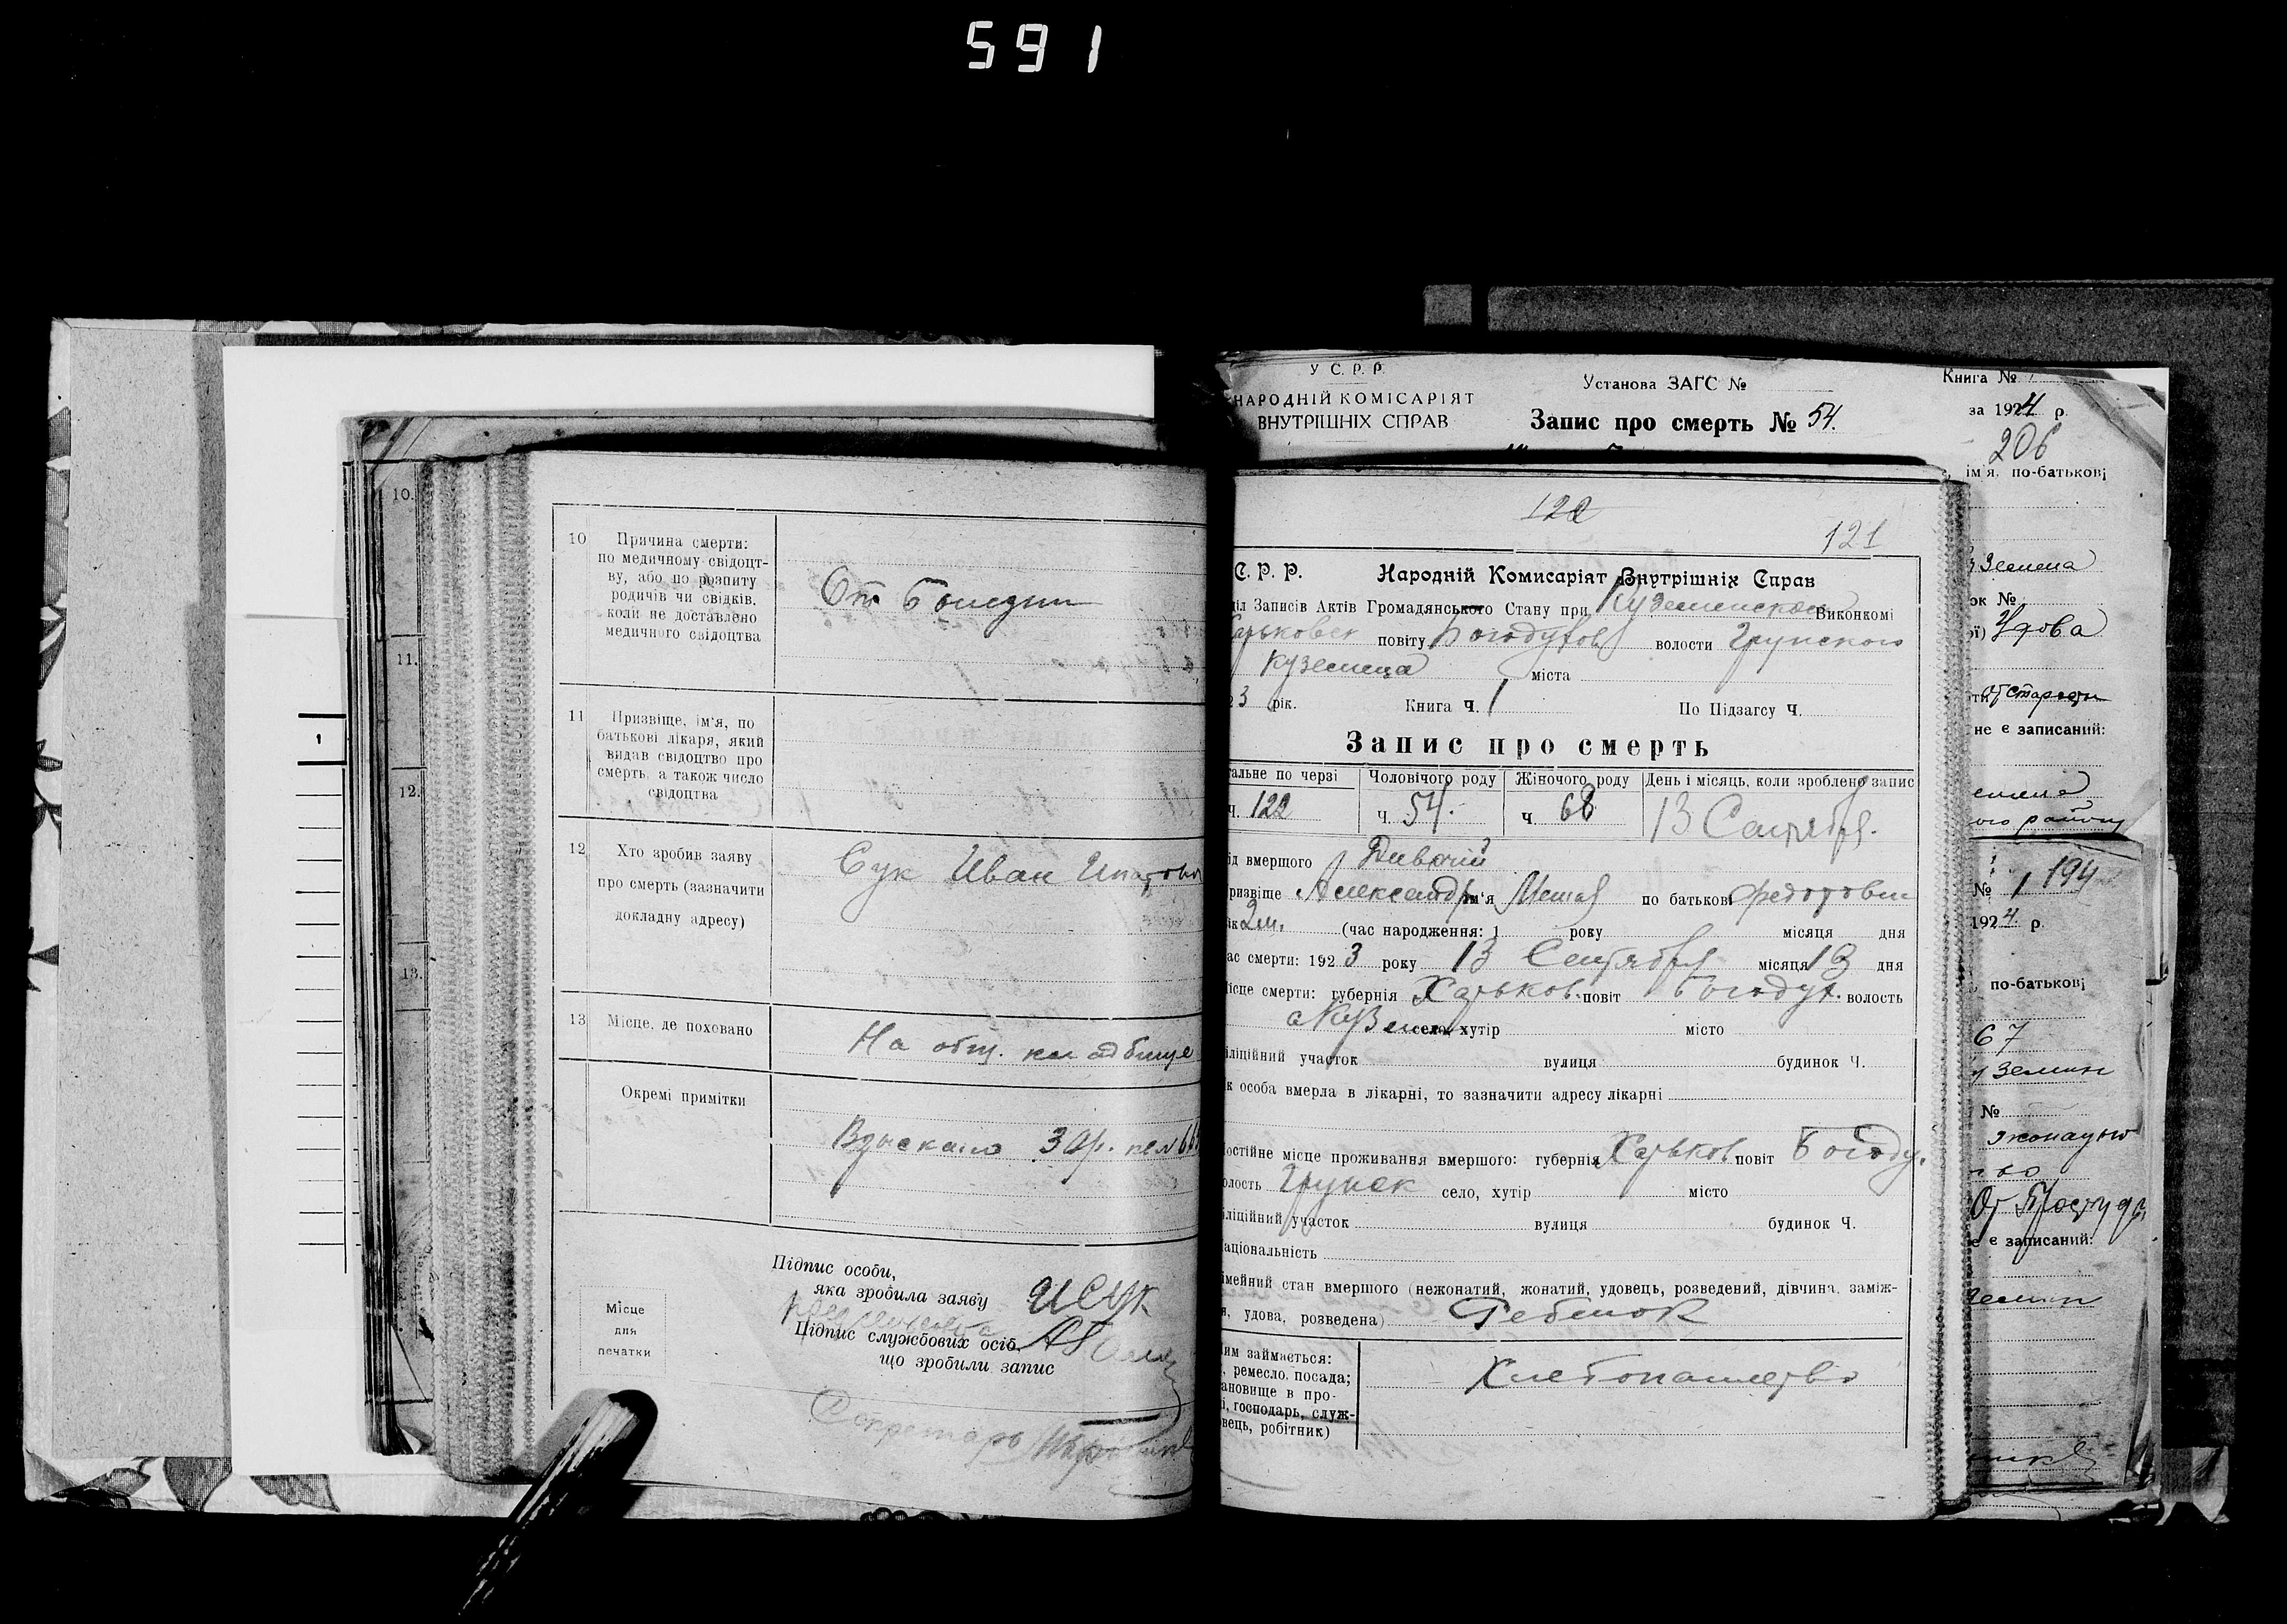 591
10 Причина смерти:
по медичному свідоцт-
ву, або по розпиту
родичів чи свідків,
коли не доставлено
медичного свідоцтва
От болезни
11 Призвіще, ім'я, по
батькові лікаря, який
видав свідоцтво про
смерть, а також число
свідоцтва
12 Хто зробив заяву
про смерть (зазначити
докладну адресу)
Сук Иван
13 Місце, де поховано
На общ. кладбище
Окремі примітки
Взыскано 30 р.
Підпис особи,
яка зробила заяву
И Сук
Підпис службових осіб
що зробили запис
Місце
для
печатки
Секретарь
10.
11.
12.
13.
1
У С. Р. Р.
НАРОДНІЙ КОМІСАРІЯТ
ВНУТРІШНІХ СПРАВ
Установа ЗАГС №
Запис про смерть № 54.
Книга №
за 1924 р.
206
ім'я, по-батькові
122
121
С. Р. Р. Народній Комисаріят Внутрішніх Справ
діл Записів Актів Громадянського Стану при Куземенском Виконкомі
Харьковск повіту Богодухов волости Грунского
Куземена міста
3 рік. Книга Ч. 1 По Підзагсу Ч.
Запис про смерть
гальне по черзі Чоловічого роду Жіночого роду День і місяць, коли зроблено запис
ч. 122 ч. 54. ч 68 13 Сентября.
ід вмершого
ризвіще Александр ім'я по батькові Федоров
ік 2 м. (час народження: 1 року місяця дня
ас смерти: 1923 року 13 Сентября місяця 13 дня
ісце смерти: губернія Харьков. повіт Богодух. волость
село, хутір місто
іліційний участок вулиця будинок Ч.
к особа вмерла в лікарні, то зазначити адресу лікарні
остійне місце проживання вмершого: губернія Харьков. повіт Богоду.
олость Грунск село, хутір місто
ліційний участок вулиця будинок Ч.
аціональність
імейний стан вмершого (нежонатий, жонатий, удовець, розведений, дівчина, заміж-
я, удова, розведена) Ребенок
им займається:
, ремесло, посада;
ановище в про-
і, господарь, служ-
вець, робітник)
Хлебопашество
ок №
Удова
от старости
не є записаний:
№ 1 194
1924 р.
по-батькові
67
№
От Простуды
е є записаний: